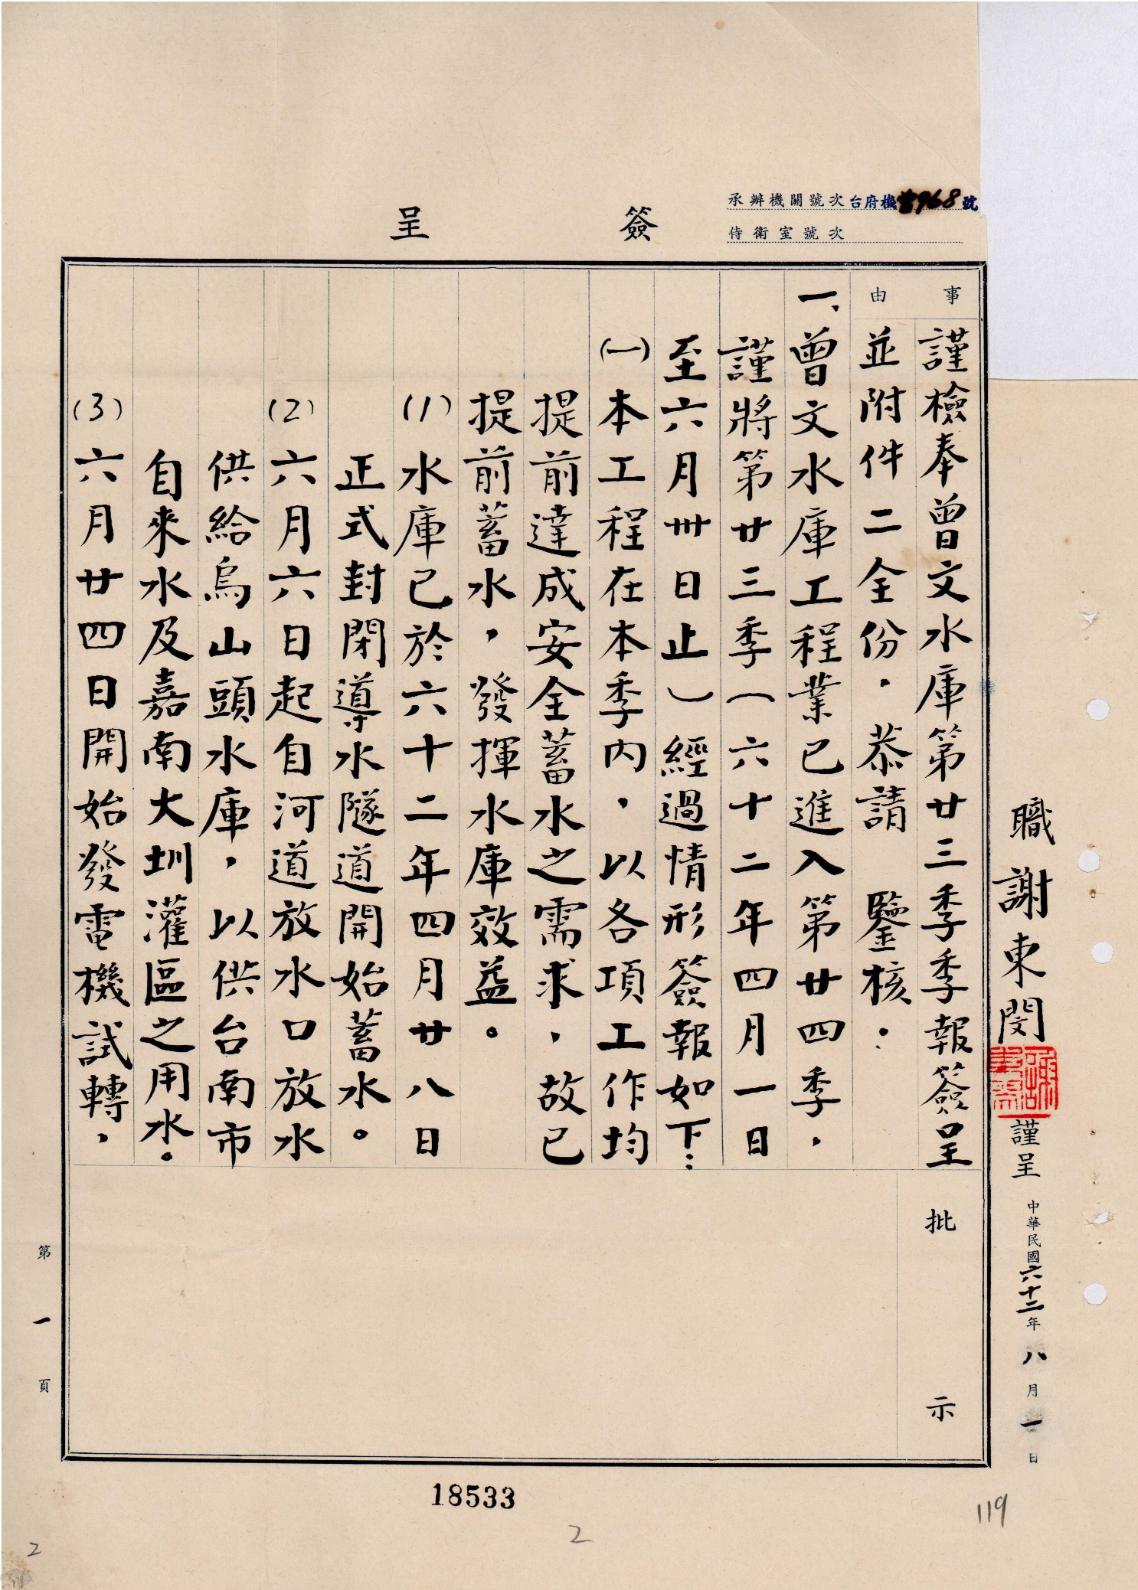 承辦機關號次台府機 968號
侍衛室號次
簽呈
事由
謹檢奉曾文水庫第廿三季季報簽呈
並附件二全份.恭請 鑒核.
一、曾文水庫工程業已進入第廿四季，
謹將第廿三季(六十二年四月一日
至六月卅日止)經過情形簽報如下:
(一)本工程在本季內，以各項工作均
提前達成安全蓄水之需求，故已
提前蓄水，發揮水庫效益。
(1)水庫已於六十二年四月廿八日
正式封閉導水隧道開始蓄水。
(2)六月六日起自河道放水口放水
供給烏山頭水庫，以供台南市
自來水及嘉南大圳灌區之用水。
(3)六月廿四日開始發電機試轉，
批示
職謝東閔
謹呈
中華民國六十二年八月一日
第一頁
18533
2
119
2